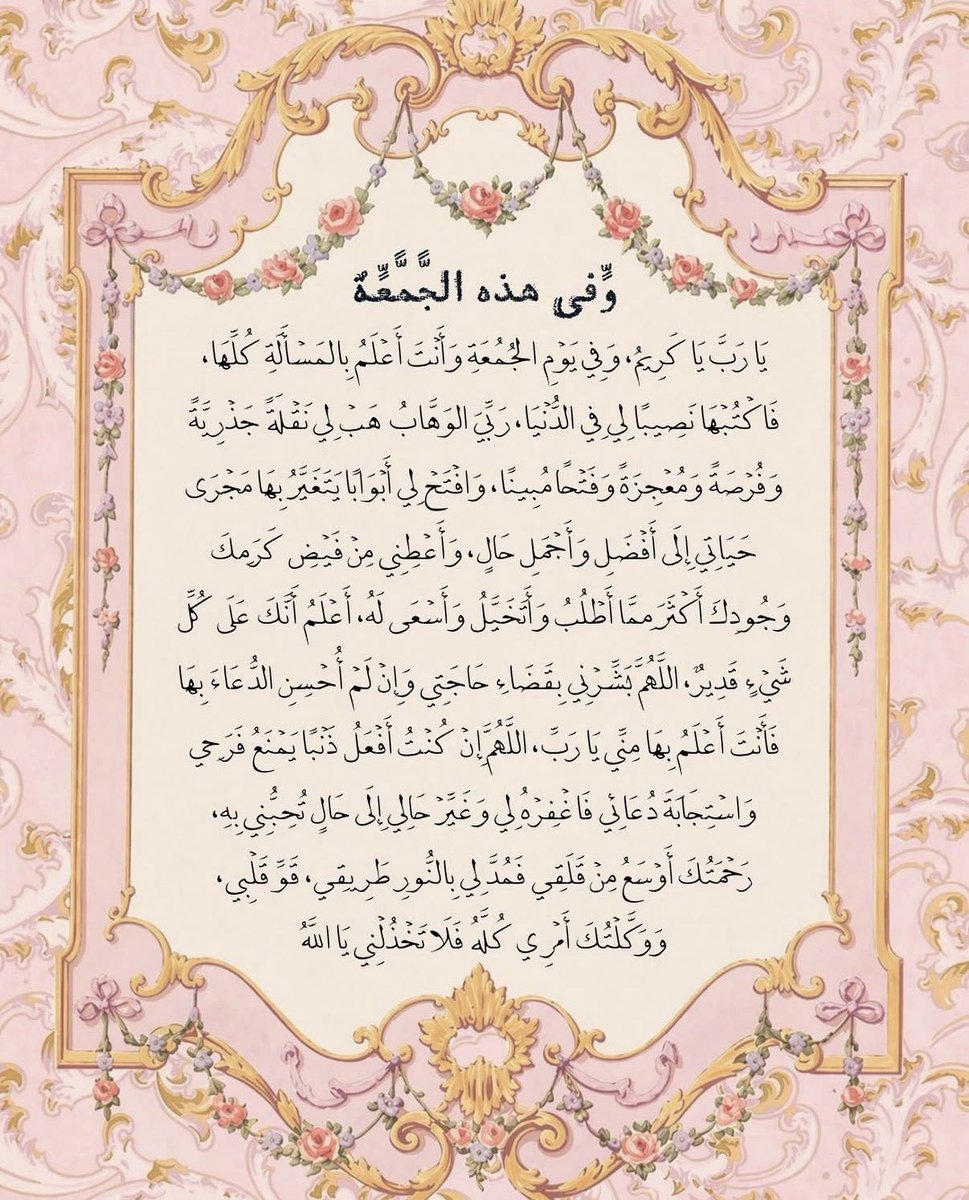 وَّفي هذه الجَّمَّعَّة
يَا رَبَّ يَا كَرِيمُ، وَفِي يَوْمِ الجُمُعَةِ وَأَنْتَ أَعْلَمُ بِالمَسأَلَةِ كُلِّهَا،
فَاكْتُبْهَا نَصِيبًا لِي فِي الدُّنْيَا، رَبِّيَ الوَهَّابُ هَبْ لِي نَقْلَةً جَذْرِيَّةً
وَفُرْصَةً وَمُعْجِزَةً وَفَتْحًا مُبِينًا، وَافْتَحْ لِي أَبْوَابًا يَتَغَيَّرُ بِهَا مَجْرَى
حَيَاتِي إِلَى أَفْضَلِ وَأَجْمَلِ حَالٍ، وَأَعْطِنِي مِنْ فَيْضِ كَرَمِكَ
وَجُودِكَ أَكْثَرَ مِمَّا أَطْلُبُ وَأَتَخَيَّلُ وَأَسْعَى لَهُ، أَعْلَمُ أَنَّكَ عَلَى كُلِّ
شَيْءٍ قَدِيرٌ، اللَّهُمَّ بَشِّرْنِي بِقَضَاءِ حَاجَتِي وَإِنْ لَمْ أُحْسِنِ الدُّعَاءَ بِهَا
فَأَنْتَ أَعْلَمُ بِهَا مِنِّي يَا رَبِّ، اللَّهُمَّ إِنْ كُنْتُ أَفْعَلُ ذَنْبًا يَمْنَعُ فَرَحِي
وَاسْتِجَابَةَ دُعَائِي فَاغْفِرْهُ لِي وَغَيِّرْ حَالِي إِلَى حَالٍ تُحِبُّنِي بِهِ،
رَحْمَتُكَ أَوْسَعُ مِنْ قَلَقِي فَمُدَّ لِي بِالنُّورِ طَرِيقِي، قَوِّ قَلْبِي،
وَوَكَّلْتُكَ أَمْرِي كُلَّهُ فَلَا تَخْذُلْنِي يَا اللَّهُ